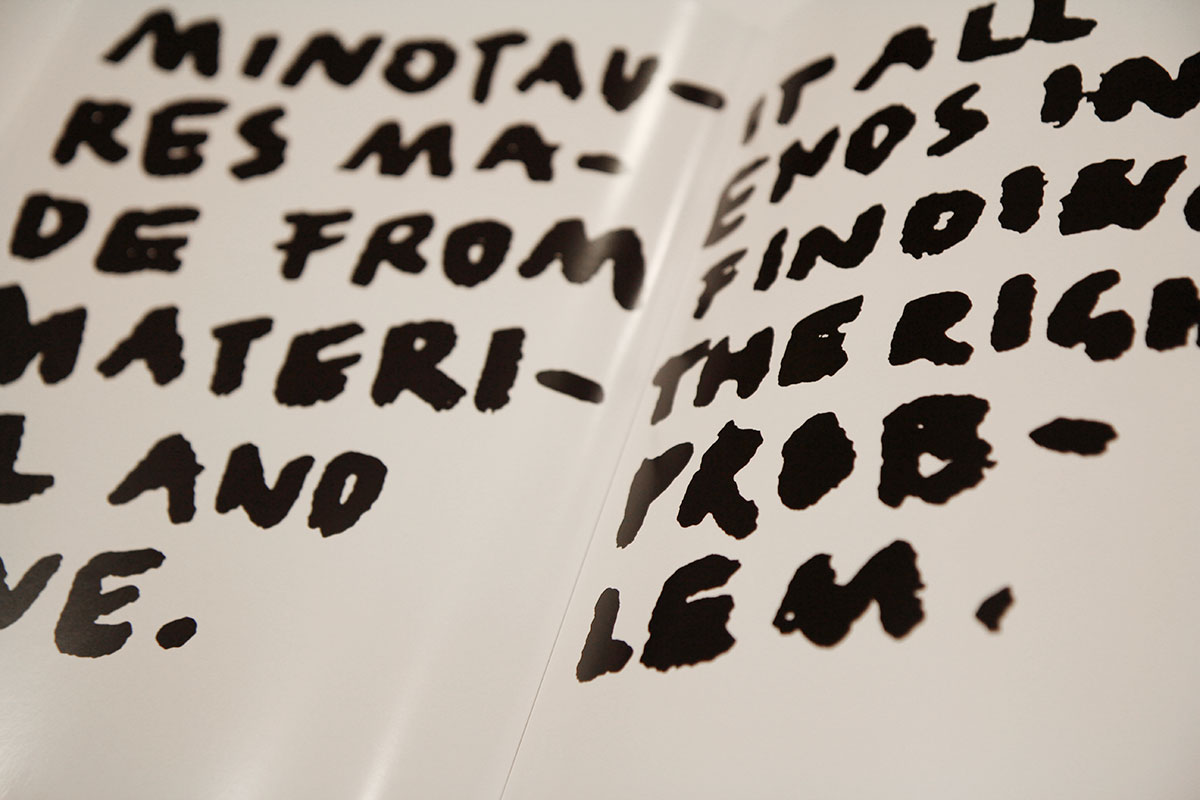 MINOTAU-
RES MA-
DE FROM
MATERI-
L AND
VE.
IT ALL
ENDS IN
FINDING
THE RIGH
PROB-
LEM.